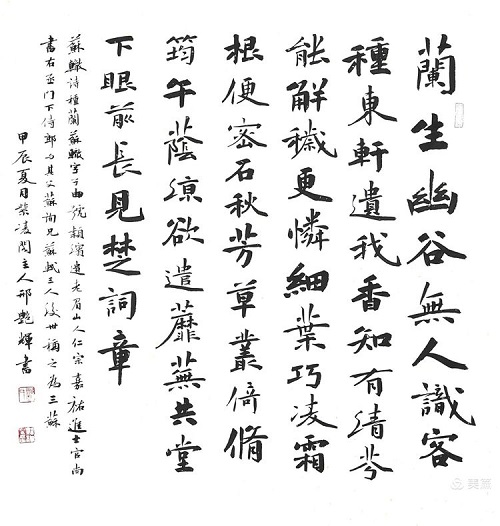 蘭生幽谷無人識客
種東軒遺我香知有清芬
能解穢更憐細葉巧凌霜
根便密石秋芳草叢倚脩
筠午蔭涼欲遣蘼蕪共堂
下眼前長見楚詞章
蘇轍詩種蘭蘇轍字子由號穎濱遺老眉山人仁宗嘉祐進士官尚
書右丞门下侍郎与其父蘇洵兄蘇軾三人後世稱之為三蘇
甲辰夏月紫凌閣主人邢艷輝書
美篇